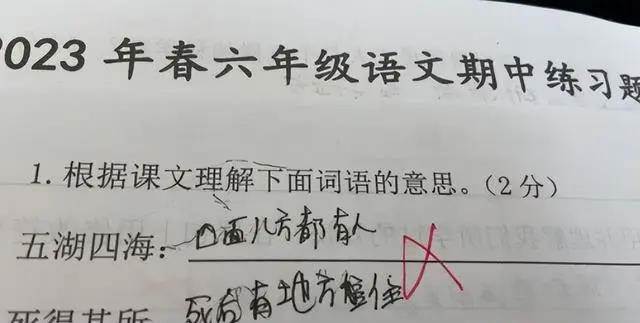 2023 年春六年级语文期中练习题
1. 根据课文理解下面词语的意思。（2 分）
五湖四海：四面八方都有人
死得其所 死后有地方住